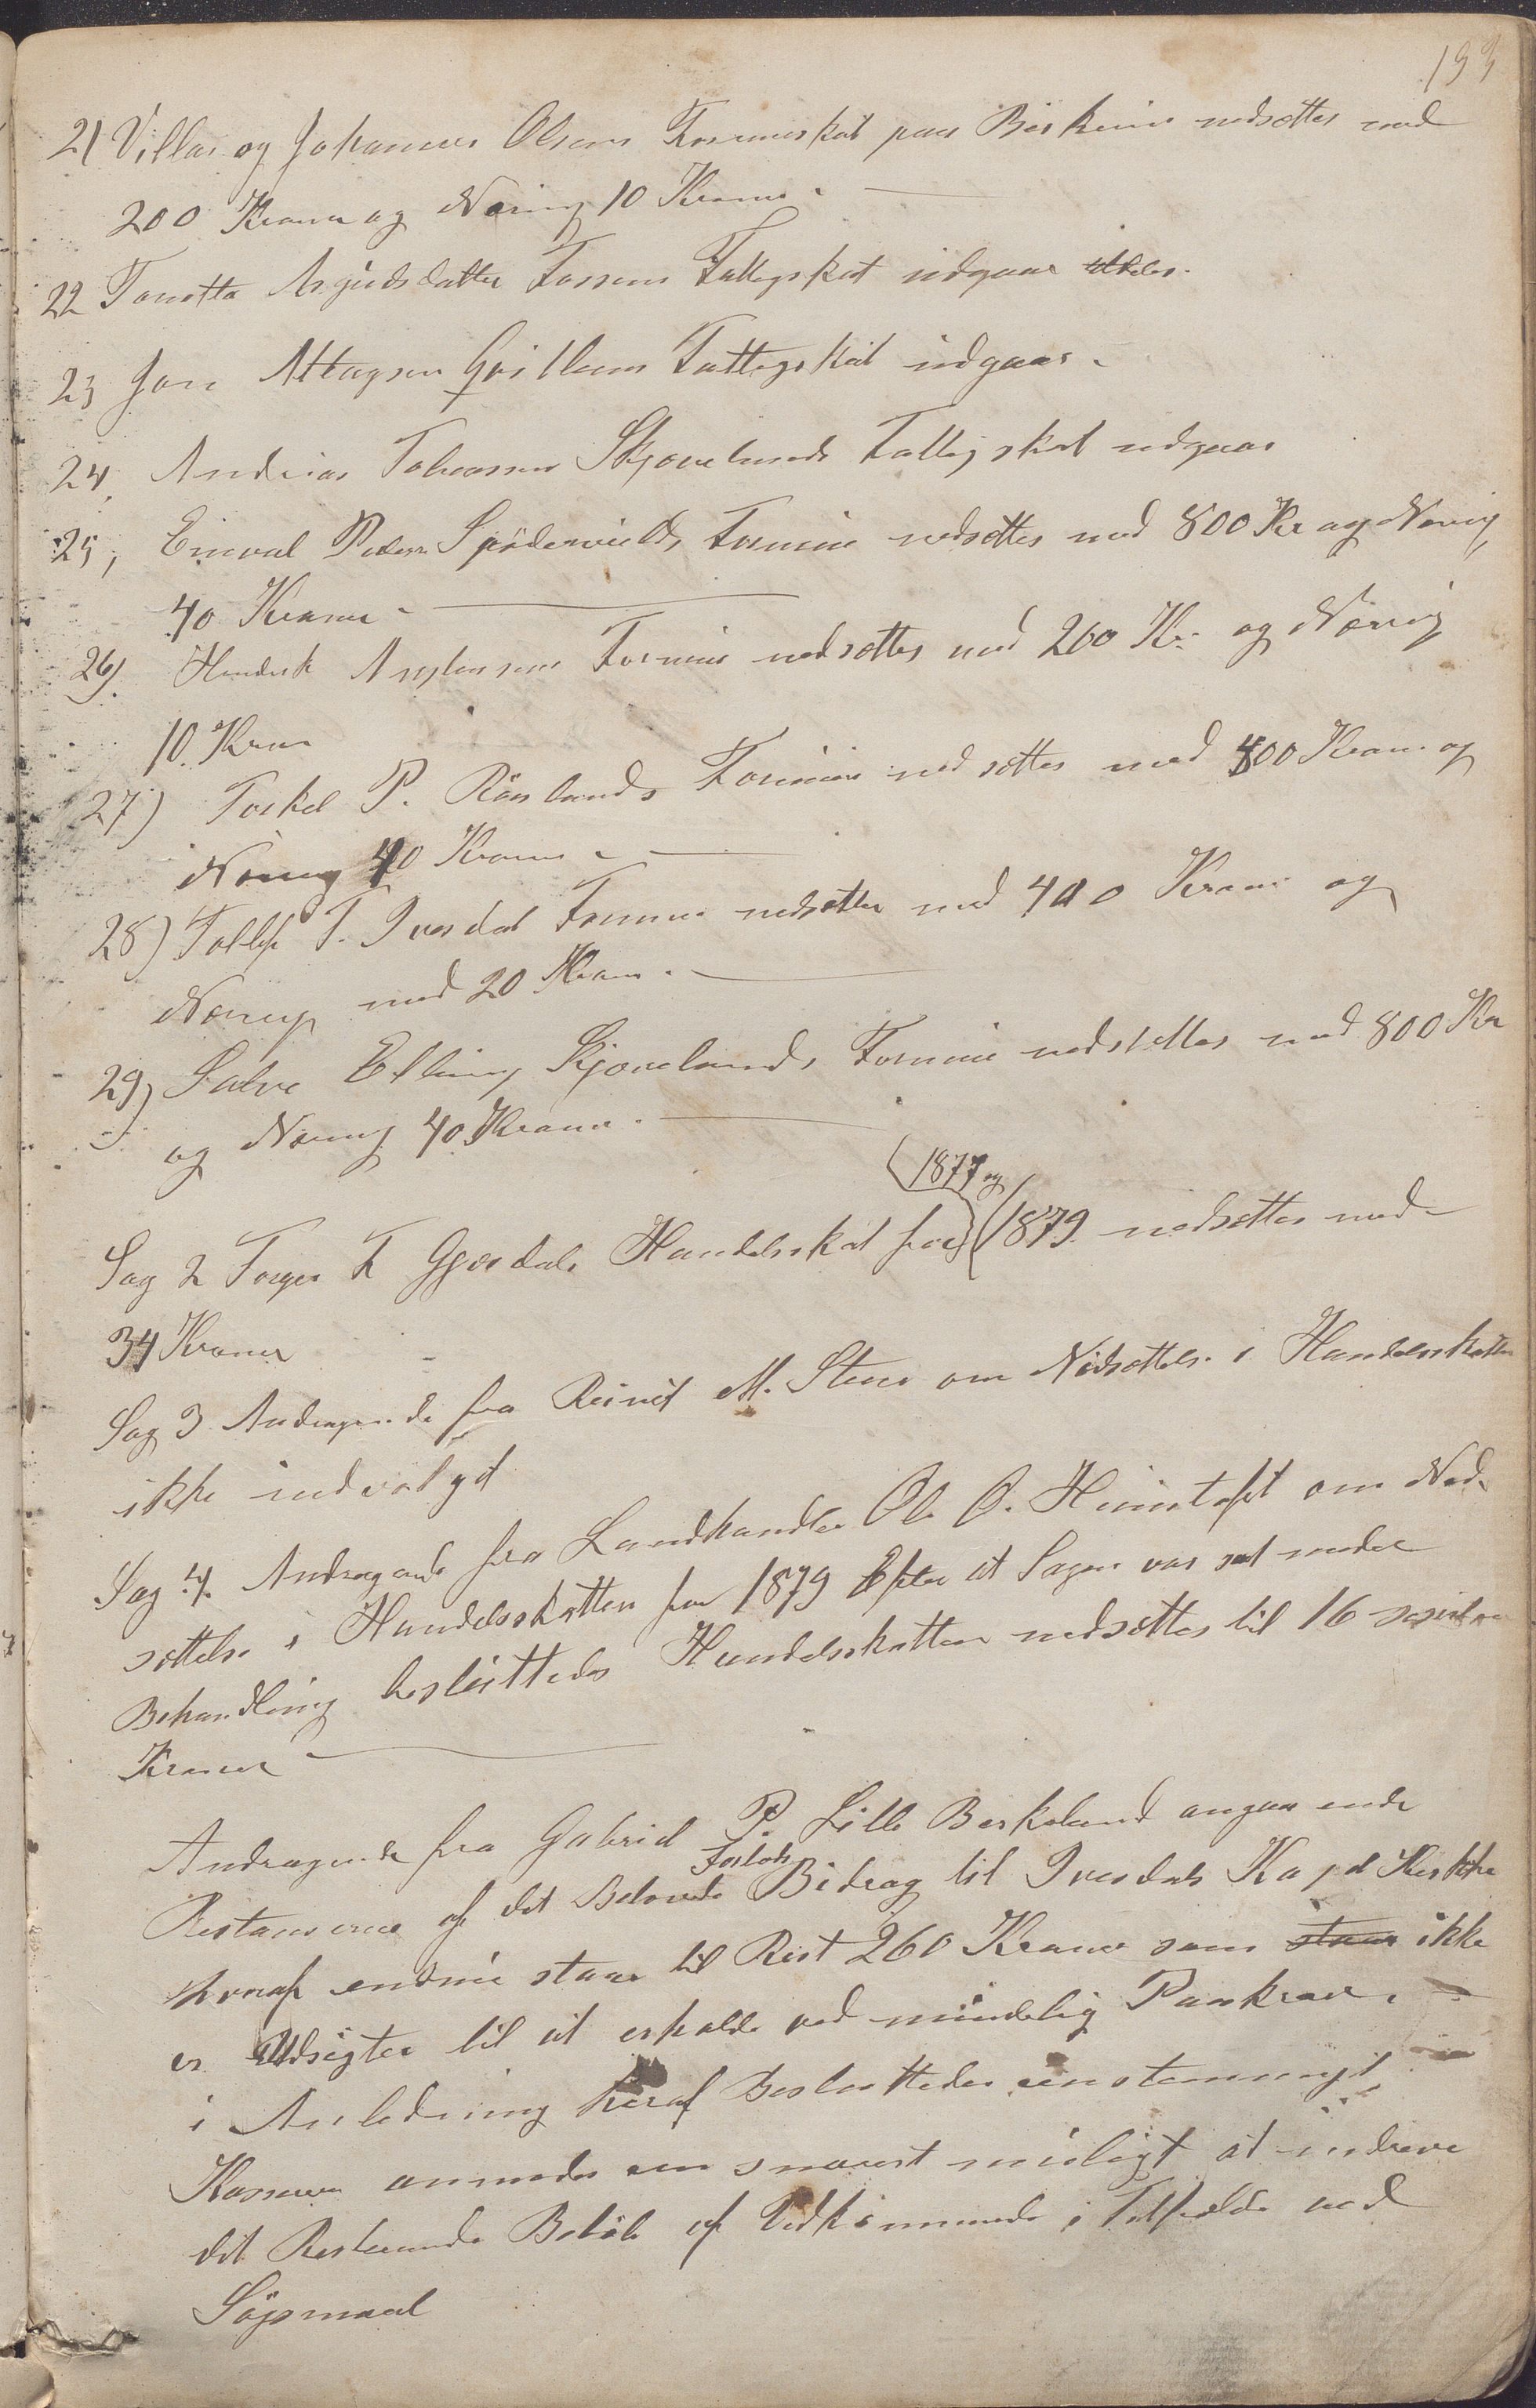 193
21) Villas og Johannes Olsens Formueskat paa Birkeim nedsættes med
200 Kroner og Næring 10 Kroner.
22 Asgudsdatter Fossens Fattigskat udgaar
23 Jon Attagsen Fattigskat udgaar.
24, Andreas Tobiassen Skjævelands Fattigskat udgaar
25, Peders Formue nedsættes med 800 Kr og Nærig
40 Kroner
26) Henderk Formue nedsættes med 260 Kr. og Nærig
10. Kron
27) Torkel P. Røislands Formue nedsættes med 800 Kron. og
Næring 40 Kroner
28) Tollef T. Ivesdal Formue nedsættes med 400 Krone og
Næring med 20 Kron.
29) Salve Elling Skjævelands Formue nedsættes med 800 Kr
og Næring 40 Kroner.
(1877 og
Sag 2 Torger T Gjesdals Handelsskat for (1879 nedsættes med
34 Kroner
Sag 3 Andragende fra Reinert M. Steen om Nedsættelse i Handelsskatten
ikke indvilget
Sag 4. Andragende fra Landhandler Ole O. om Ned-
sættelse i Handelsskatten for 1879 Efter at Sagen var sat under
Behandling besluttedes Handelsskatten nedsættes til 16 sexten
Kroner
Andragende fra Gabriel P. Lille Birkeland angaaende
Forlods
Restancerne af det Belovede Bidrag til Ivesdals Kapel Kirkke
hvoraf endnu staar til Rest 260 Kroner som staar ikke
er Udsigter til at erholde ved mindelig Paakrav.
i Anledning heraf Besluttedes eenstemmigt
Kasseren anmodes om snarest muligt at inddrive
det Resterende Beløb af Vedkommende i Tilfælde ved
Søgsmaal